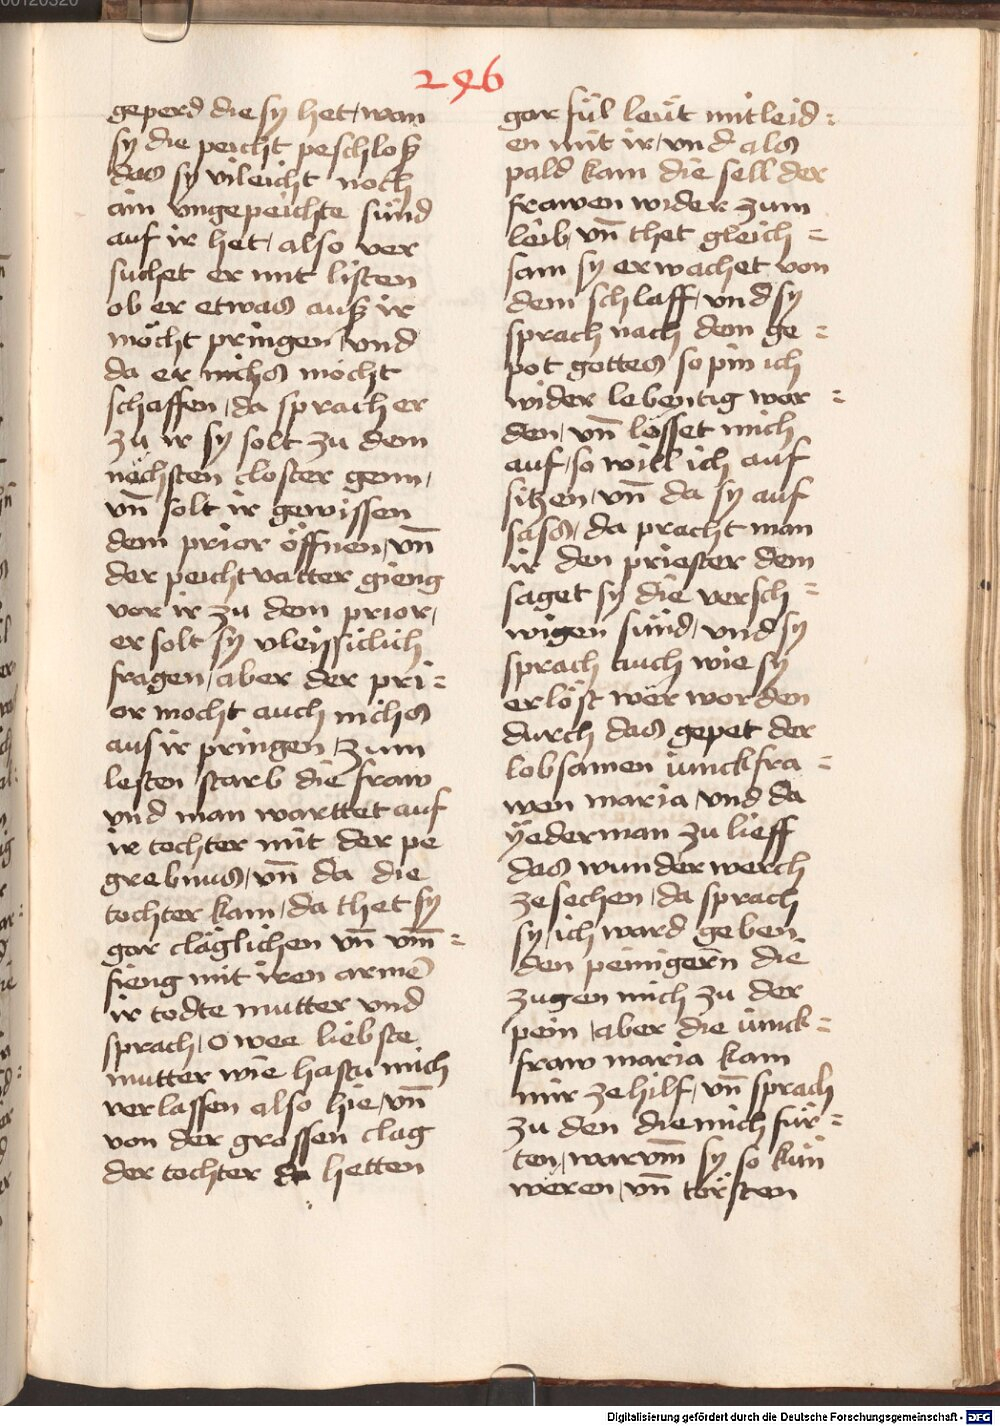 00120320
296
geperd die sy het / wan
sy die peicht peschloß
das sy vileicht noch
ain vngepeichte sünd
auf ir het / also ver
suchet er mit listen
ob er etwas auß ir
möcht pringen / vnd
da er nichs möcht
schaffen / da sprach er
zu ir sy solt zu dem
nächsten closter genn /
vn̄ solt ir gewissen
dem prior öffnen / vn̄
der peichtvatter gieng
vor ir zu dem prior /
er solt sy vleissiclich
fragen / aber der pri=
or mocht auch nichs
aus ir pringen / zum
lesten starb die fraw
vnd man warttet auf
ir tochter mit der pe
grebnus / vn̄ da die
tochter kam / da thet sy
gar cläglichen vn̄ vm̄=
fieng mit iren armē
ir todte mutter vnd
sprach / O wee liebste
mutter wie hastu mich
verlassen also hie / vn̄
von der grossen clag
der tochter da hetten
gar fül leüt mitleid=
en mit ir / vnd als
pald kam die sell der
frawen wider zum
leib / vn̄ thet gleich=
sam sy erwachet von
dem schlaff / vnd sy
sprach nach dem ge=
pot gottes so pin ich
wider lebentig wor=
den / vn̄ lösset mich
auf / so will ich auf
sitzen / vn̄ da sy auf
sass / da pracht man
ir den priester dem
saget sy die versch=
wigen sünd / vnd sy
sprach auch wie sy
erlöst wër worden
durch das gepet der
lobsamen iunckfra=
wen maria / vnd da
ÿederman zu lieff
das wunderwerch
ze sechen / da sprach
sy / ich ward geben
den peinigern̄ die
zugen mich zu der
pein / aber die iunck=
fraw maria kam
mir ze hilf / vn̄ sprach
zu den die mich für=
ten / warvm̄ sy so kün
wëren / vn̄ törsten
Digitalisierung gefördert durch die Deutsche Forschungsgemeinschaft - DFG